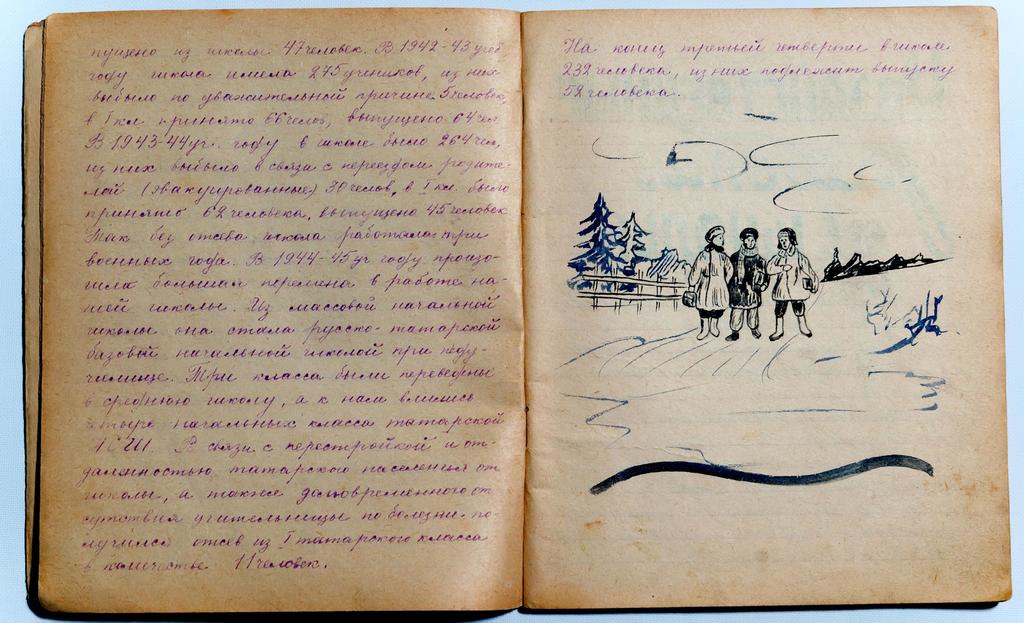 пущено из школы 47 человек. В 1942-43 уч.
году школа имела 275 учеников, из них
выбыло по уважительной причине 5 человек,
в I кл. принято 66 челов, выпущено 64 чел
В 1943-44 уч. году в школе было 264 чел,
из них выбыло в связи с переездом родите-
лей (эвакуированные) 30 челов, в I кл. было
принято 62 человека, выпущено 45 человек
Так без отсева школа работала три
военных года. В 1944-45 уч году произо-
шла большая перемена в работе на-
шей школы. Из массовой начальной
школы она стала русско-татарской
базовой начальной школой при пед/у-
чилище. Три класса были переведены
в среднюю школу, а к нам влились
четыре начальных класса татарской
НСШ. В связи с перестройкой и от-
даленностью татарского населения от
школы, а также долговременного от
сутствия учительницы по болезни, по-
лучился отсев из I татарского класса
в количестве 11 человек.
На конец третьей четверти в школе
232 человека, из них подлежит выпуску
52 человека.